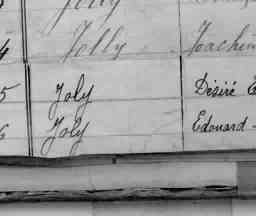 Jolly
4 Jolly Joachim
5 Joly Désiré
6 Joly Edouard